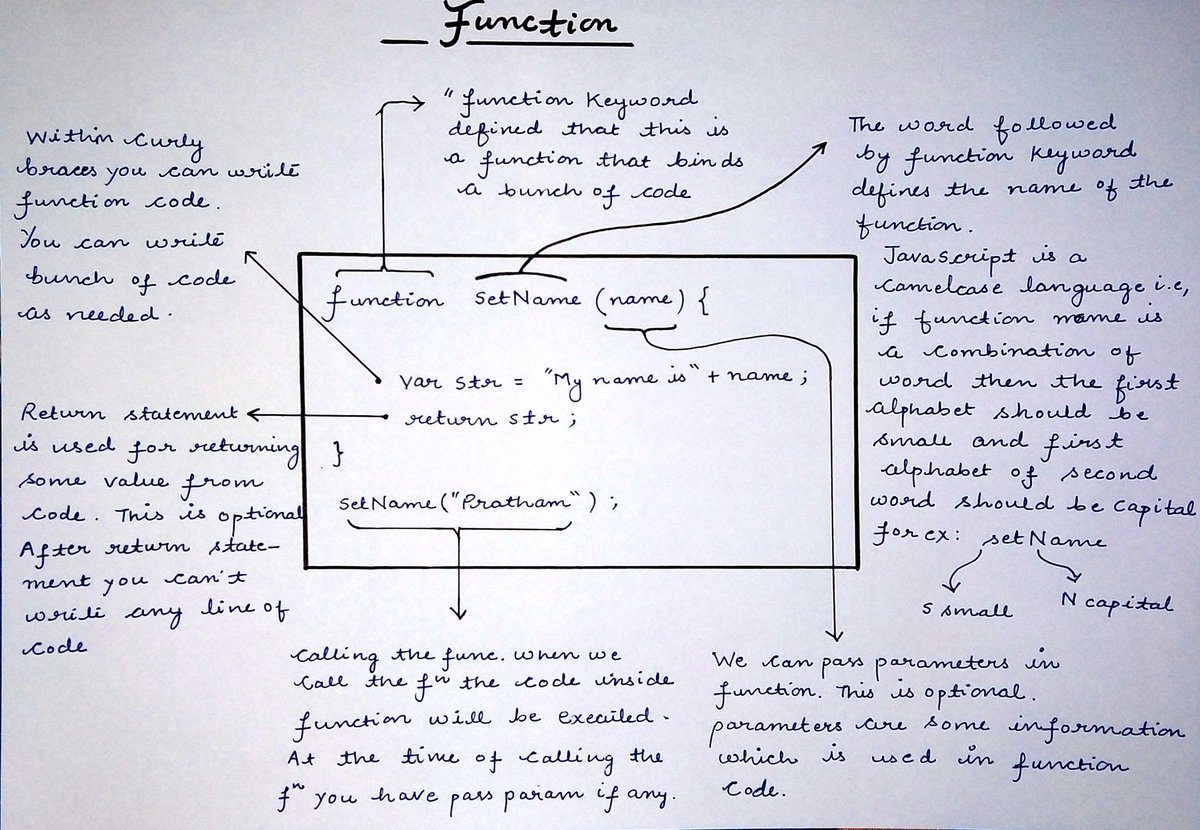 Function
" function Keyword
defined that this is
a function that binds
a bunch of code
Within Curly
braces you can write
function code.
You can write
bunch of code
as needed.
The word followed
by function Keyword
defines the name of the
function.
JavaScript is a
Camelcase language i.e,
if function name is
a combination of
word then the first
alphabet should be
small and first
alphabet of second
word should be capital
for ex: setName
s small
N capital
function setName (name) {
var str = "My name is" + name ;
return str ;
}
setName("Pratham") ;
Return statement
is used for returning
some value from
code. This is optional
After return state-
ment you can't
write any line of
code
Calling the func. when we
call the fn the code inside
function will be executed.
At the time of calling the
fn you have pass param if any.
We can pass parameters in
function. This is optional.
parameters are some information
which is used in function
code.